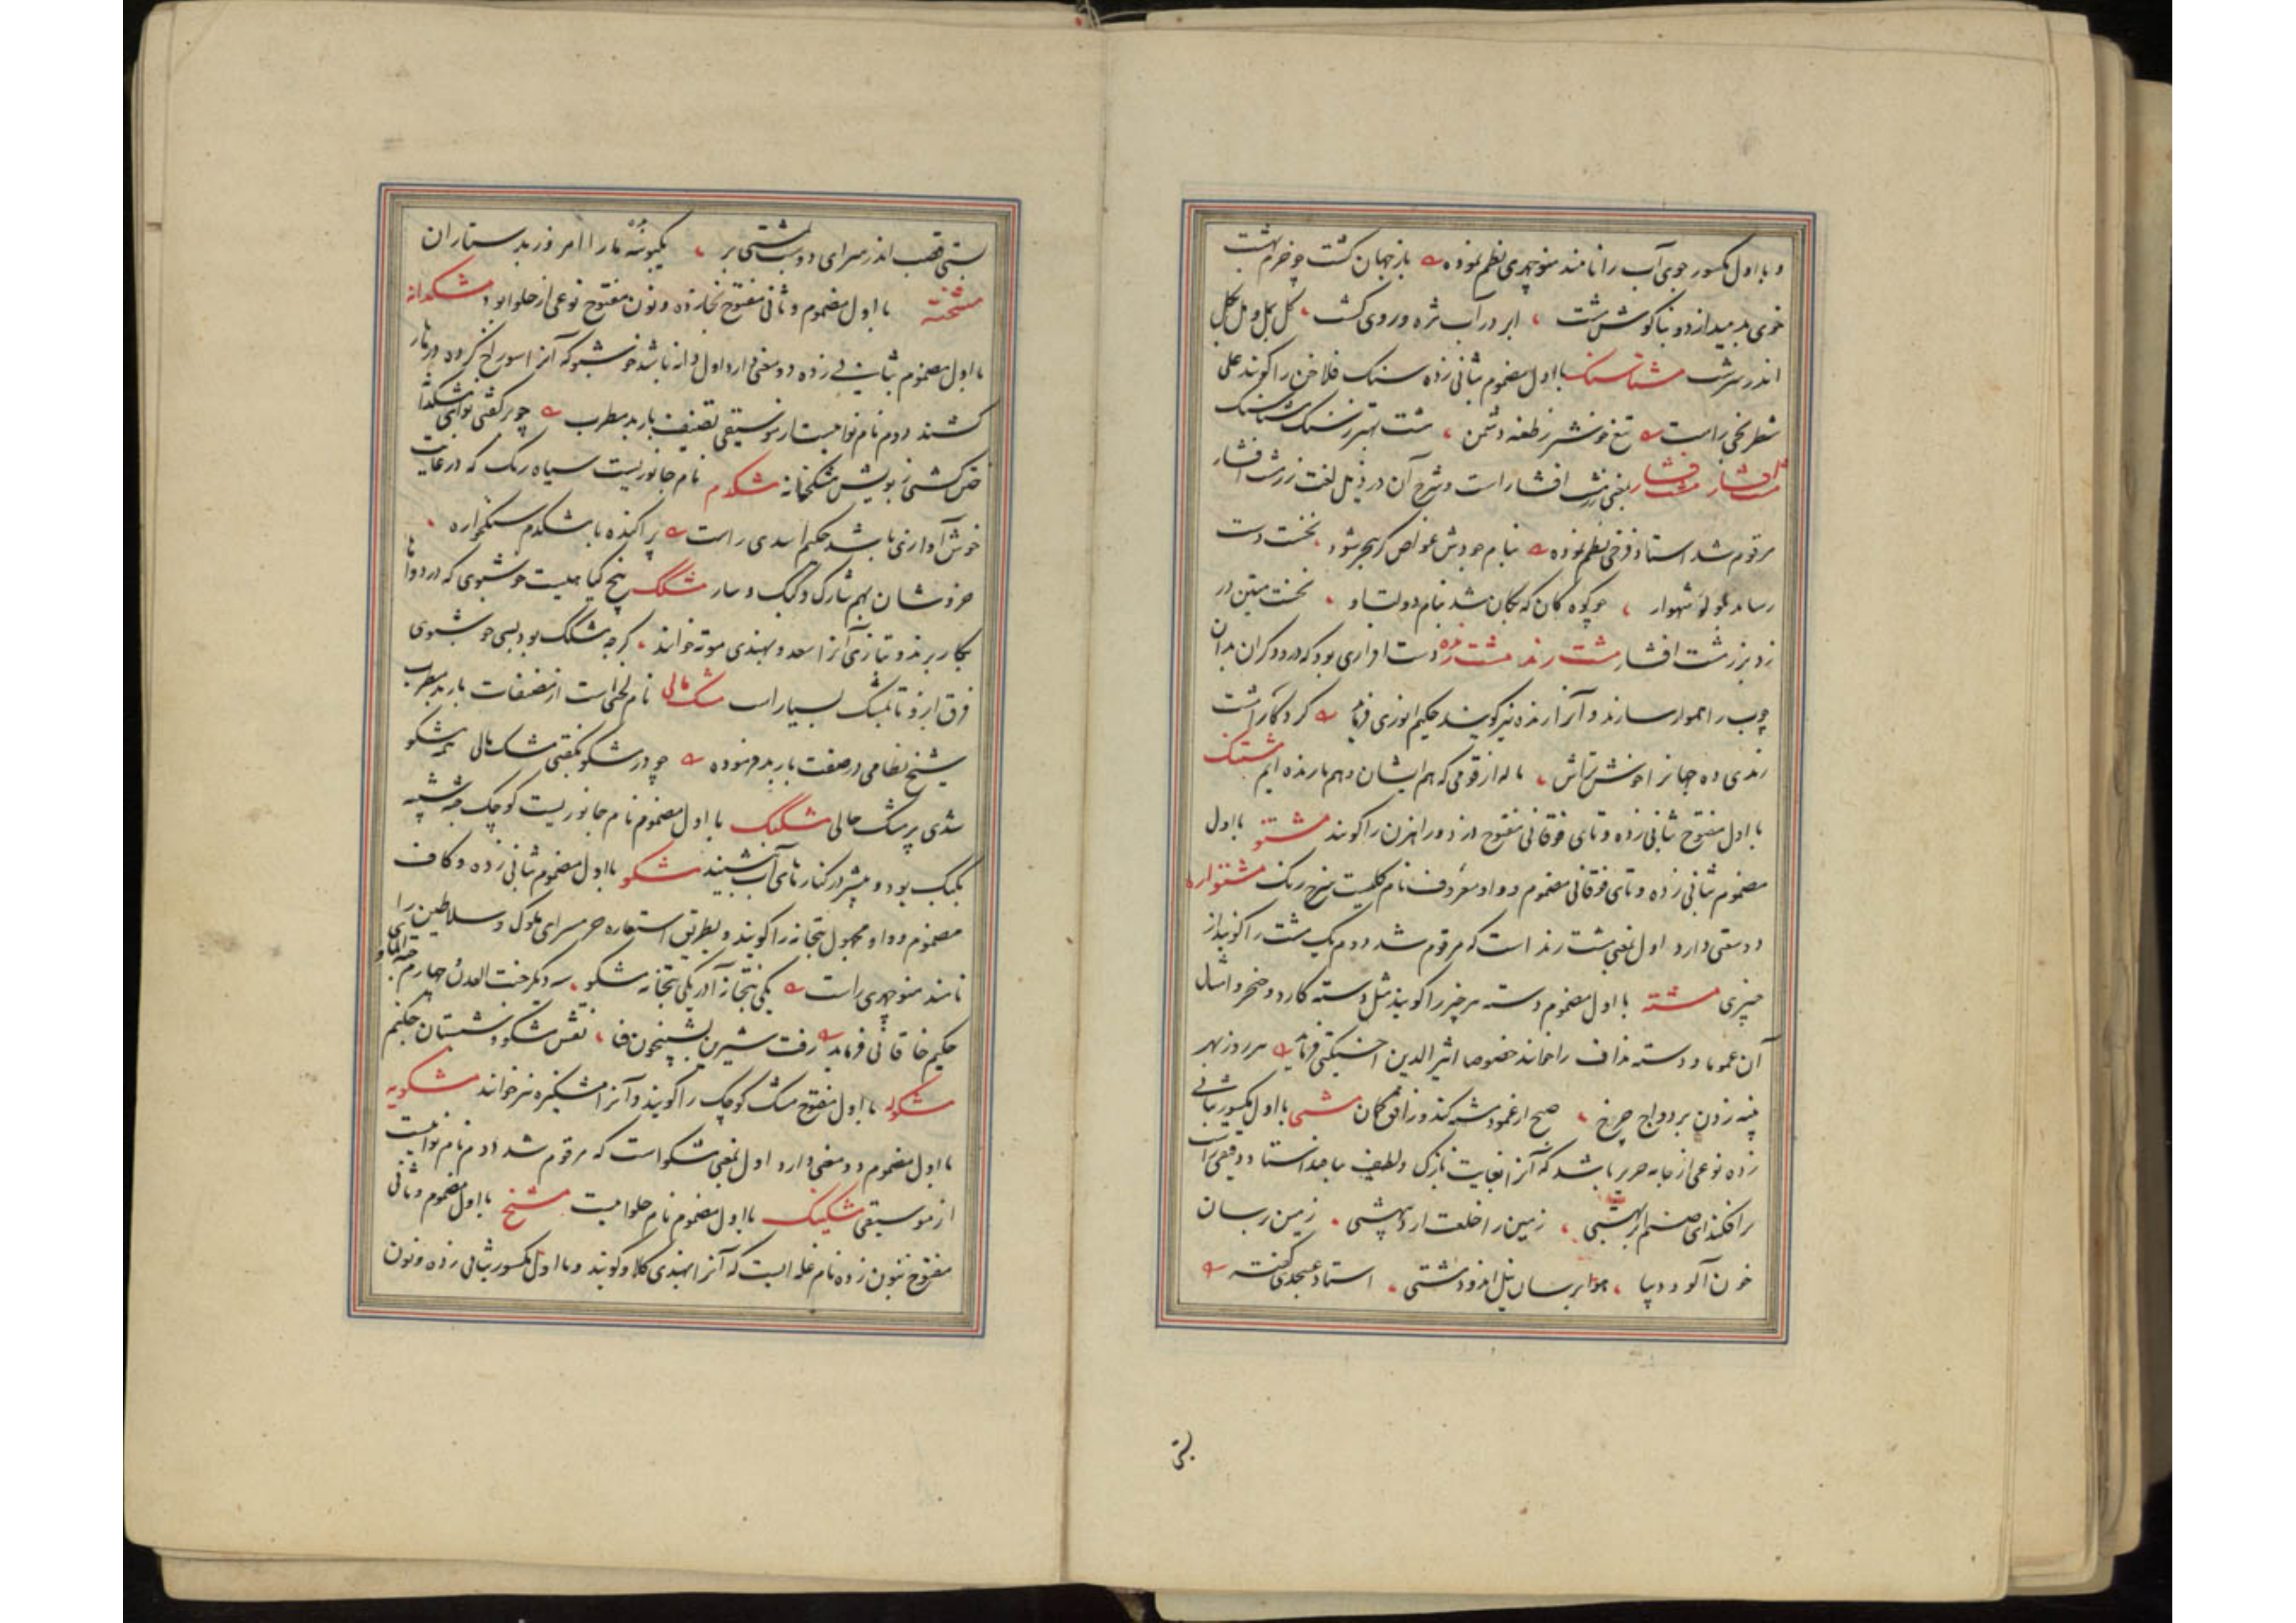 و با اول مکسور جوی آب را نامند منوچهری نظم نموده باز جهان کشت چو خرم بهشت
خوی بدمید از دو بناکوش مشت ابر در آب مژه در روی کشت کل بمل و مل بکل
اندر سرشت مشتاسنک با اول مضموم بثانی زده سنک فلاخن را کویند علی
شطرنجی راست تیغ خونش ز طعنه دشمن هست بهتر ز سنک مشتاسنک
مشت افشار مشت فشار یعنی زر مشت افشار است و شرح آن در ذیل لغت زر مشت افشار
مرقوم شد استاد فرخی نظم نموده بنام جودش غواص کر ببحر شود نخست دست
رساند بلولو شهوار چو کوه کان که بکان شد بنام دولت او نخست متین در
زد بزر مشت افشار مشت رند مشت رنده دست افزاری بود که درودکران بدان
چوب را هموار سازند و آنرا رنده نیز کویند حکیم انوری فرماید کر دکر اشت
رندی ده جهانرا خوش بتراش ما له از قومی که هم ایشان و هم ما رنده ایم مشتنک
با اول مفتوح بثانی زده و تای فوقانی مفتوح دزد و راهزن را کویند مشتو با اول
مضموم بثانی زده و تای فوقانی مضموم و واو معروف نام کلیست سرخ رنک مشتواره
دو معنی دارد اول بمعنی مشت رند است که مرقوم شد دوم یک مشت را کویند از
چیزی مشته با اول مضموم دسته هر چیز را کویند مثل دسته کارد و خنجر و امثال
آن عموما و دسته نداف را خوانند خصوصا اثیر الدین اخسیکتی فرماید هر روز بهر
پنبه زدن بر دواج چرخ صبح از عمود مشته کند وز افق کمان مشتی با اول مکسور بثانی
زده نوعی از جامه حریر باشد که آنرا بغایت نازک و لطیف ببافند استاد دقیقی راست
برافکند ای صنم ابر بهشتی زمین را خلعت اردیبهشتی زمین بر سان
خون آلود دیبا هوا بر سان نیل اندود مشتی استاد عسجدی کفته
بتی
بستی قصب اندر سر ای دوست بمشتی بر یکبوسه بده ما را امروز بدستاران
مشخته با اول مضموم و ثانی مفتوح بخا زده و نون مفتوح نوعی از حلوا بود مشکدانه
با اول مضموم بثانی زده دو معنی دارد اول دانه باشد خوشبو که آنرا سوراخ کرده در تار
کشند دوم نام نوا هست از موسیقی تصنیف باربد مطرب چو بر کفتی نوای مشکدانه
ختن کشتی ز بویش مشکخانه مشکدم نام جانوریست سیاه رنک که در غایت
خوش آوازی باشد حکیم اسدی راست پراکنده با مشکدم سنکخواره
خروشان بهم شارک و کبک و سار مشکک بیخ کیاهیست خوشبوی که در دواها
بکار برند و بتازی آنرا سعد و بهندی موته خوانند کرچه مشکک بود بسی خوشبوی
فرق ازو تا بمشک بسیار است مشک مالی نام لحنی است از مصنفات باربد مطرب
شیخ نظامی در صفت باربد فرموده چو در مشکو بکفتی مشک مالی همه مشکو
شدی پر مشک حالی مشکنک با اول مضموم نام جانوریست کوچک جثه شبیه
بکبک بود و بیشتر در کنارهای آب نشیند مشکو با اول مضموم بثانی زده و کاف
مضموم و واو مجهول بتخانه را کویند و بطریق استعاره حرمسرای ملوک و سلاطین را
نامند منوچهری راست یکی بتخانه آزر یکی بتخانه مشکو سه دیکر جنت العدن چهارم جنة الماوی
حکیم خاقانی فرماید رفت شیرین بشبیخون فنا نقش مشکو و شبستان چکنیم
مشکوله با اول مفتوح مشک کوچک را کویند و آنرا مشکیزه نیز خوانند مشکویه
با اول مضموم دو معنی دارد اول بمعنی مشکو است که مرقوم شد دوم نام نوا هست
از موسیقی مشکینک با اول مضموم نام حلوا هست مشنخ با اول مضموم و ثانی
مفتوح بنون زده نام غله ایست که آنرا بهندی کلاو کویند و با اول مکسور بثانی زده و نون